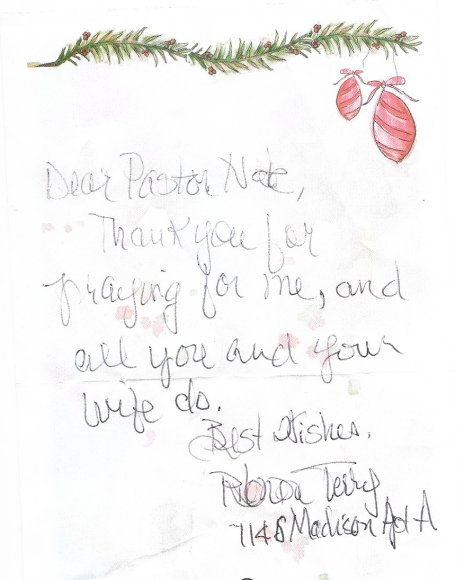 Dear Pastor Nate,
Thank you for
praying for me, and
all you and your
wife do.
Best Wishes,
Terry
Madison Apt A